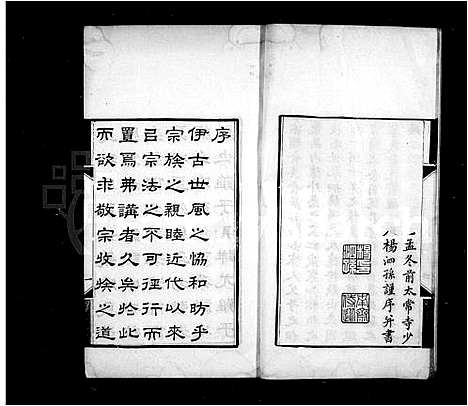 孟冬前太常寺少
楊泗孫謹序并書
序
伊古世風之協和昉乎
宗族之親睦近代以來
㠯宗法之不可徑行而
置爲弗講者久矣於此
而欲求敬宗收族之道